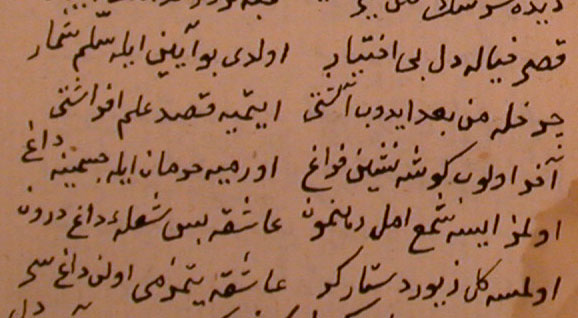 قصر خياله دل بی اختيار اولدی بو آيين ايله سلّم شمار
چرخله من بعد ايدوب آشتی ايتميه قصد علم افراشتی
آخر اولوب كوشه نشين فراغ اورميه حرمان ايله جسمينه داغ
اولمز ايسه شمع امل رهنمون عاشقه بس شعلهٔ داغ درون
اولمسه كل زيور دستار كر عاشقه يتمزمی اولن داغ سر